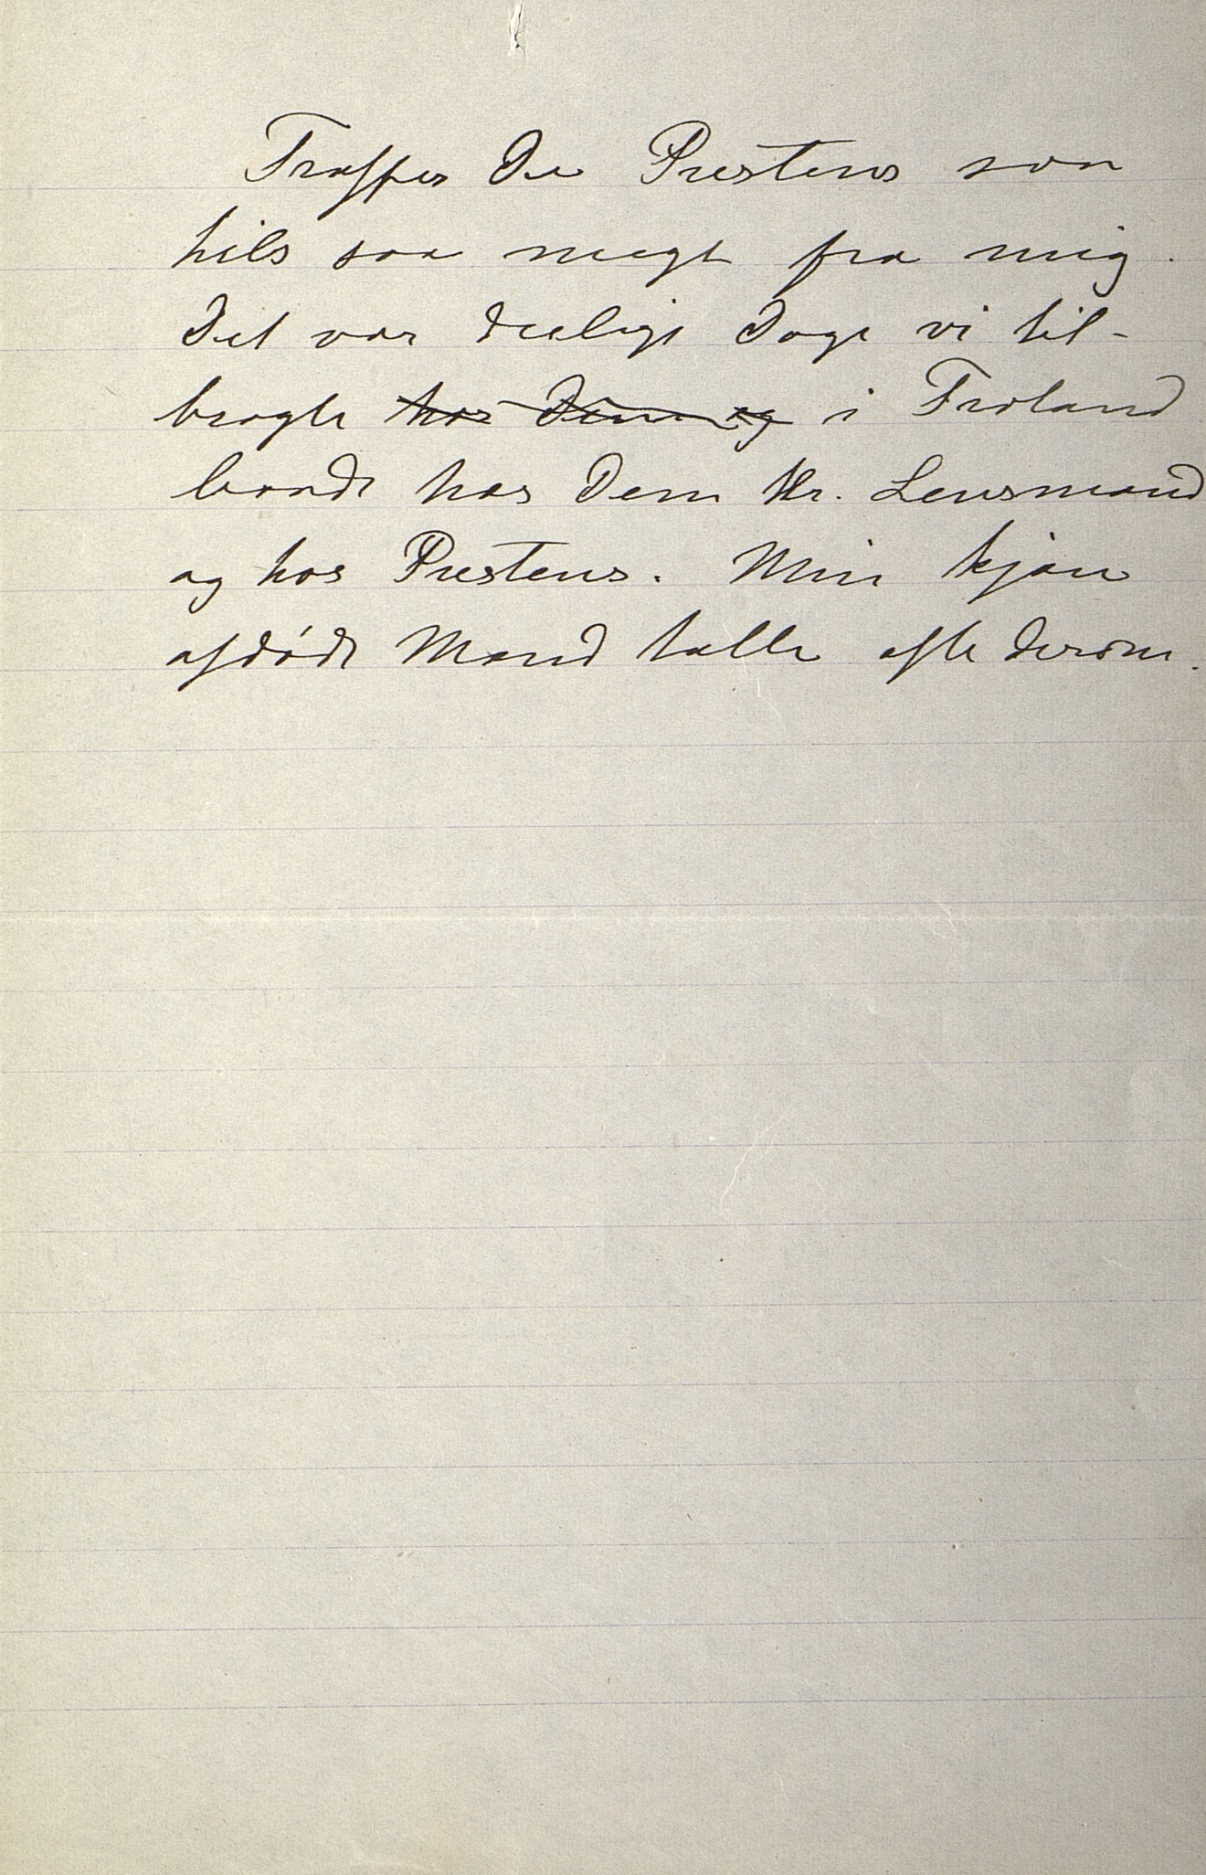 Træffer De Prestens saa
hils saa meget fra mig.
Det var deilige Dage vi til-
bragte hos Dem og i Froland
baade hos Dem Hr. Lensmand
og hos Prestens. Min kjære
afdøde Mand talte ofte derom.